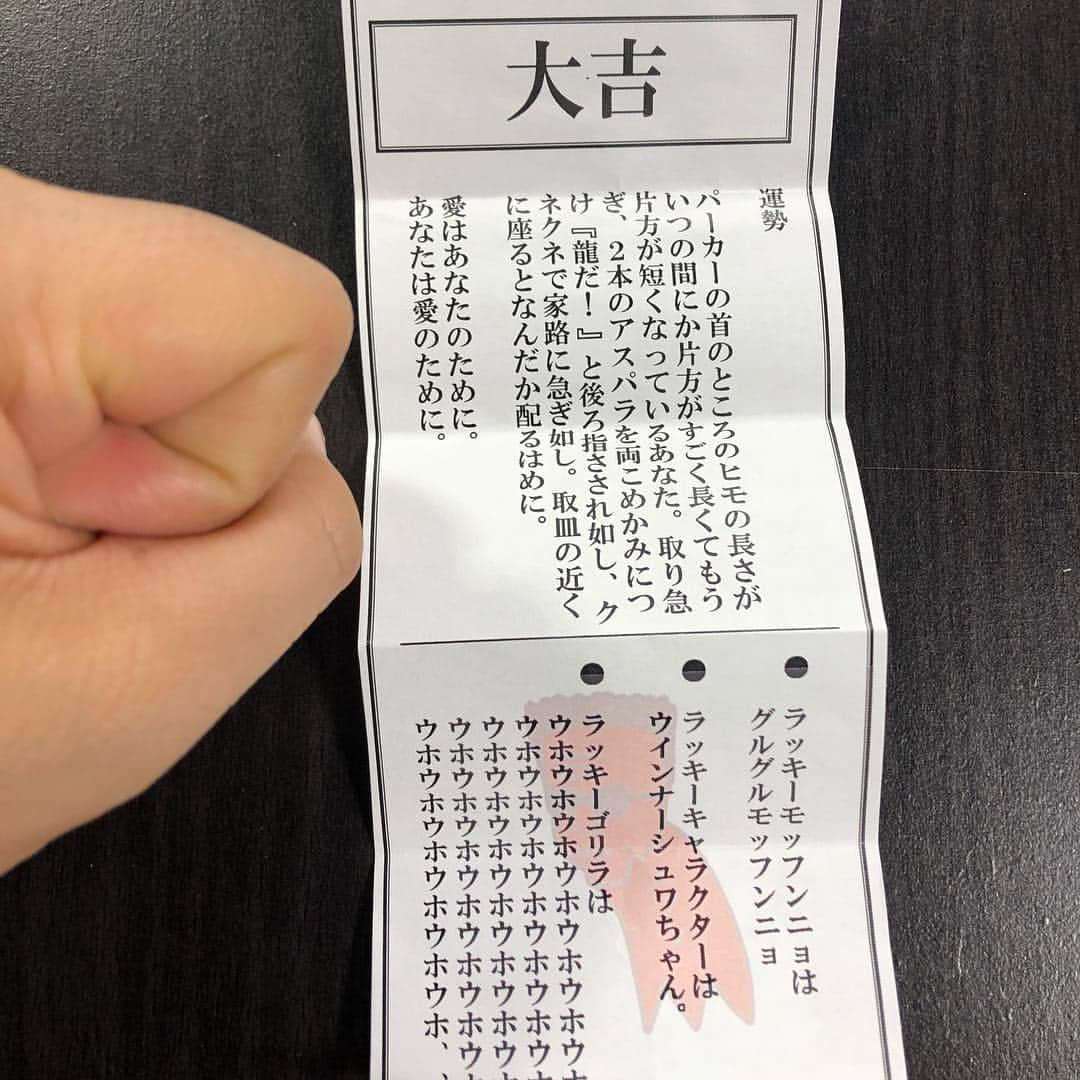 大吉
運勢
パーカーの首のところのヒモの長さが
いつの間にか片方がすごく長くてもう
片方が短くなっているあなた。取り急
ぎ、2本のアスパラを両こめかみにつ
け『龍だ！』と後ろ指さされ如し、ク
ネクネで家路に急ぎ如し。取皿の近く
に座るとなんだか配るはめに。
愛はあなたのために。
あなたは愛のために。
●ラッキーモッフンニョは
グルグルモッフンニョ
●ラッキーキャラクターは
ウインナーシュワちゃん。
●ラッキーゴリラは
ウホウホウホウホウホウホウホウ
ウホウホウホウホウホウホウホウ
ウホウホウホウホウホウホウホウ
ウホウホウホウホウホウホウホウ
ウホウホウホウホウホウホ、